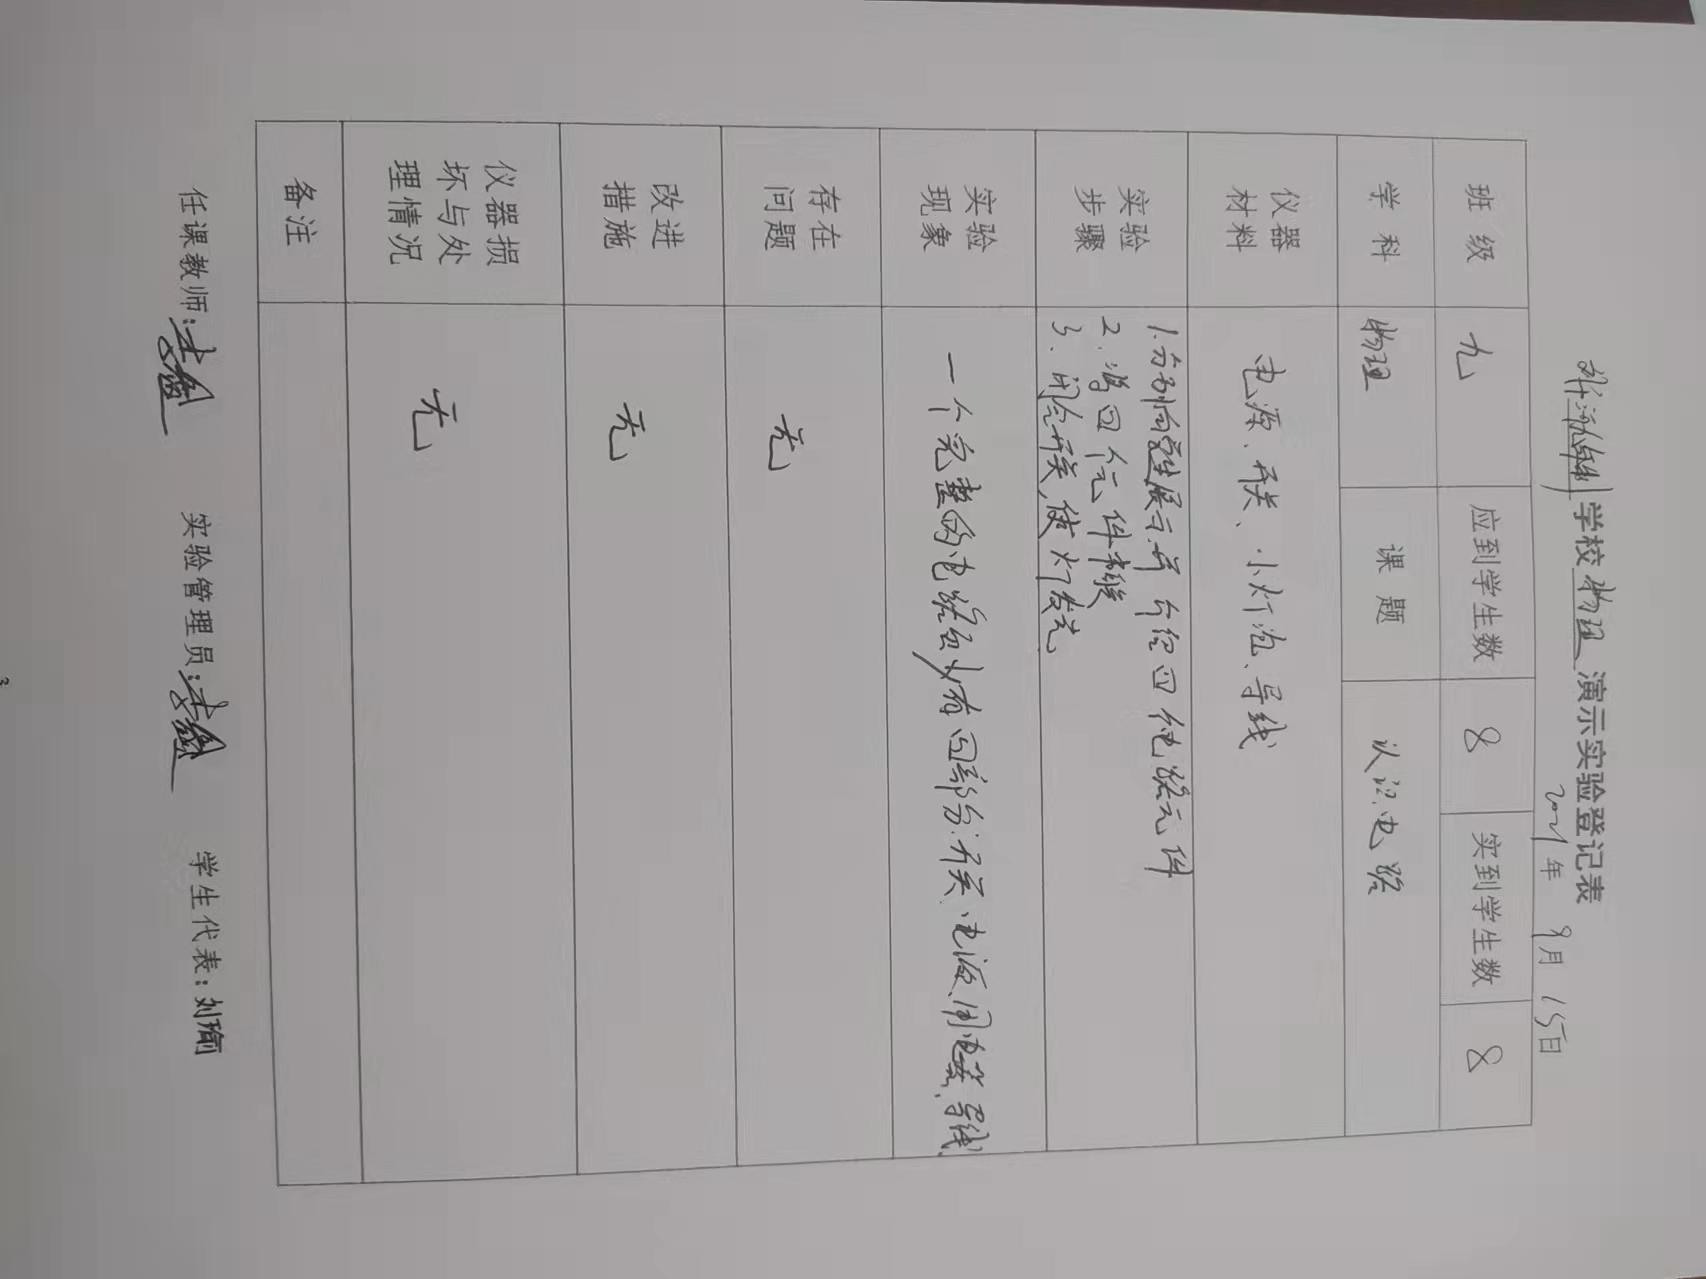 学校物理演示实验登记表
年 9月15日
班 级 九 应到学生数 8 实到学生数 8
学 科 物理 课 题 认识电路
仪器 材料 电源、开关、小灯泡、导线
实验 步骤 1.分别向学生展示并介绍四个电路元件
2.将四个元件串联
3.闭合开关,使灯发光
实验 现象 一个完整的电路至少有四部分:开关、电源、用电器、导线
存在 问题 无
改进 措施 无
仪器损 坏与处 理情况 无
备注
任课教师: 实验管理员: 学生代表:刘瑜